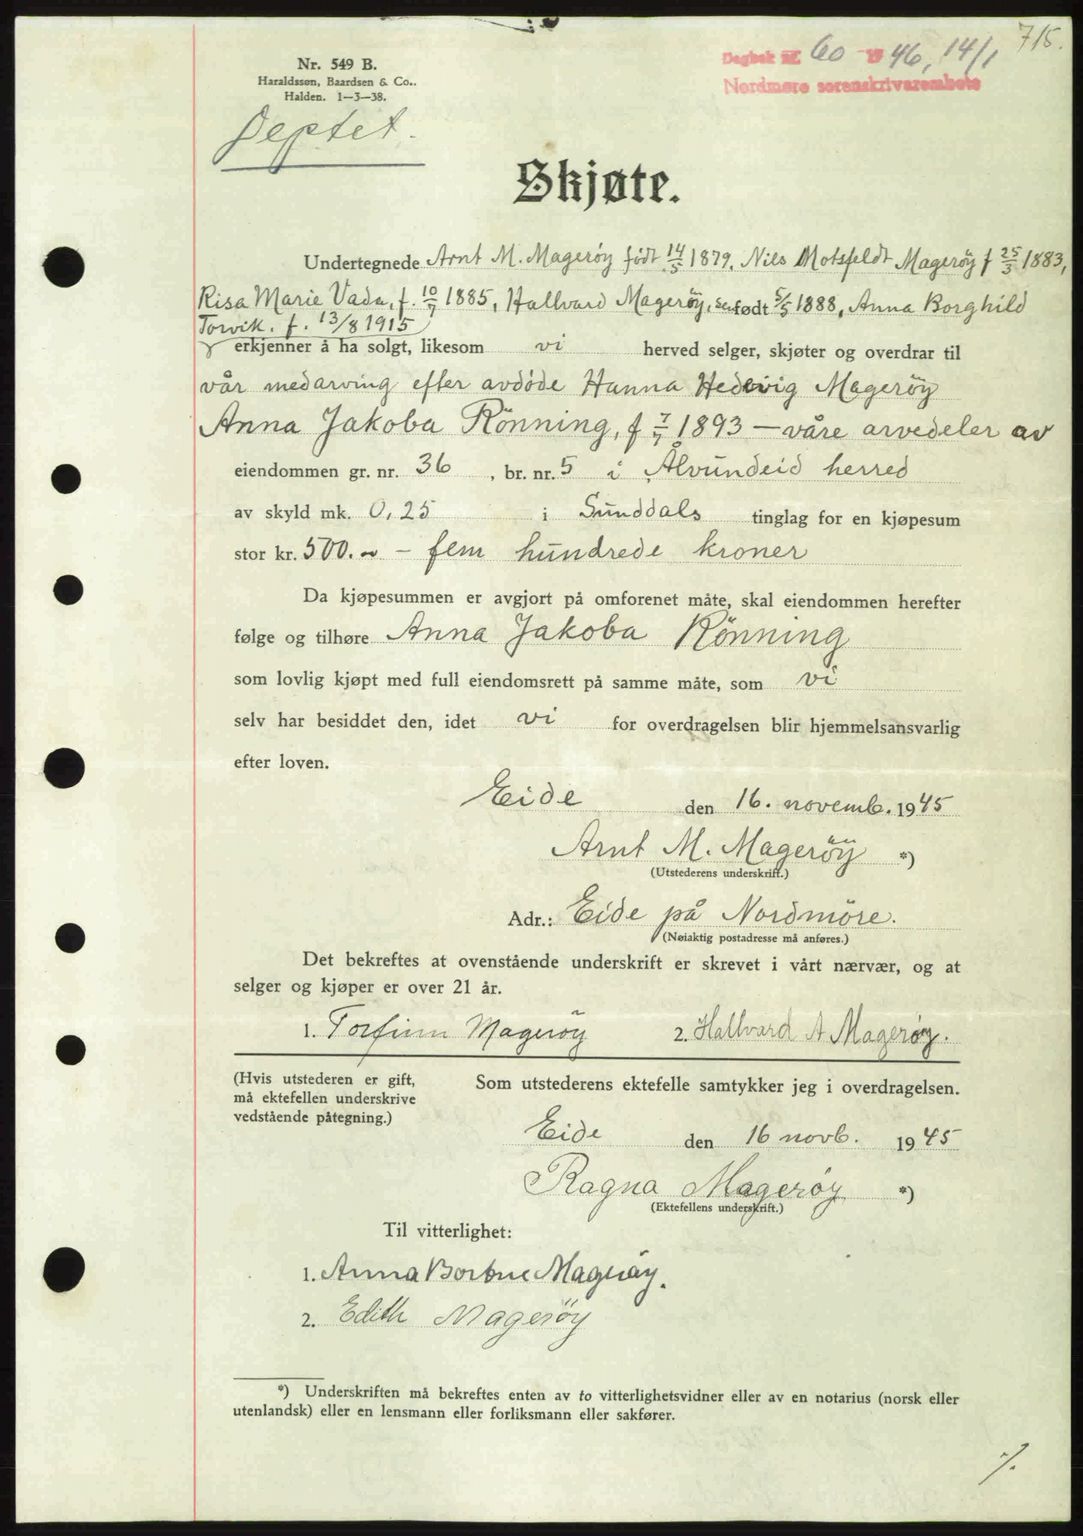 715.
Dagbok nr. 60 19 46, 14/1
Nordmøre sorenskrivarembete
Nr. 549 B.
Haraldssøn, Baardsen & Co..
Halden. 1—3—38.
Skjøte.
Undertegnede Arnt M. Magerøy født 14/5 1879, Nils Motsfeldt Magerøy f 25/3 1883,
Risa Marie Vadu, f. 10/7 1885, Hallvard Magerøy, født 5/5 1888, Anna Borghild
Torvik. f. 13/8 1915
erkjenner å ha solgt, likesom vi herved selger, skjøter og overdrar til
vår medarving efter avdöde Hanna Hedevig Magerøy
Anna Jakoba Rönning, f 7/7 1893 – våre arvedeler av
eiendommen gr. nr. 36, br. nr. 5 i Ålvundeid herred
av skyld mk. 0,25 i Sunddals tinglag for en kjøpesum
stor kr. 500.– – fem hundrede kroner
Da kjøpesummen er avgjort på omforenet måte, skal eiendommen herefter
følge og tilhøre Anna Jakoba Rönning
som lovlig kjøpt med full eiendomsrett på samme måte, som vi
selv har besiddet den, idet vi for overdragelsen blir hjemmelsansvarlig
efter loven.
Eide den 16. novemb. 1945
Arnt M. Magerøy *)
(Utstederens underskrift.)
Adr.: Eide på Nordmöre.
(Nøiaktig postadresse må anføres.)
Det bekreftes at ovenstående underskrift er skrevet i vårt nærvær, og at
selger og kjøper er over 21 år.
1. Torfinn Magerøy 2. Hallvard A Magerøy.
(Hvis utstederen er gift,
må ektefellen underskrive
vedstående påtegning.)
Som utstederens ektefelle samtykker jeg i overdragelsen.
Eide den 16 novb. 1945
Ragna Magerøy *)
(Ektefellens underskrift.)
Til vitterlighet:
1. Anna Magerøy.
2. Edith Magerøy
*) Underskriften må bekreftes enten av to vitterlighetsvidner eller av en notarius (norsk eller
utenlandsk) eller en lensmann eller forliksmann eller sakfører.